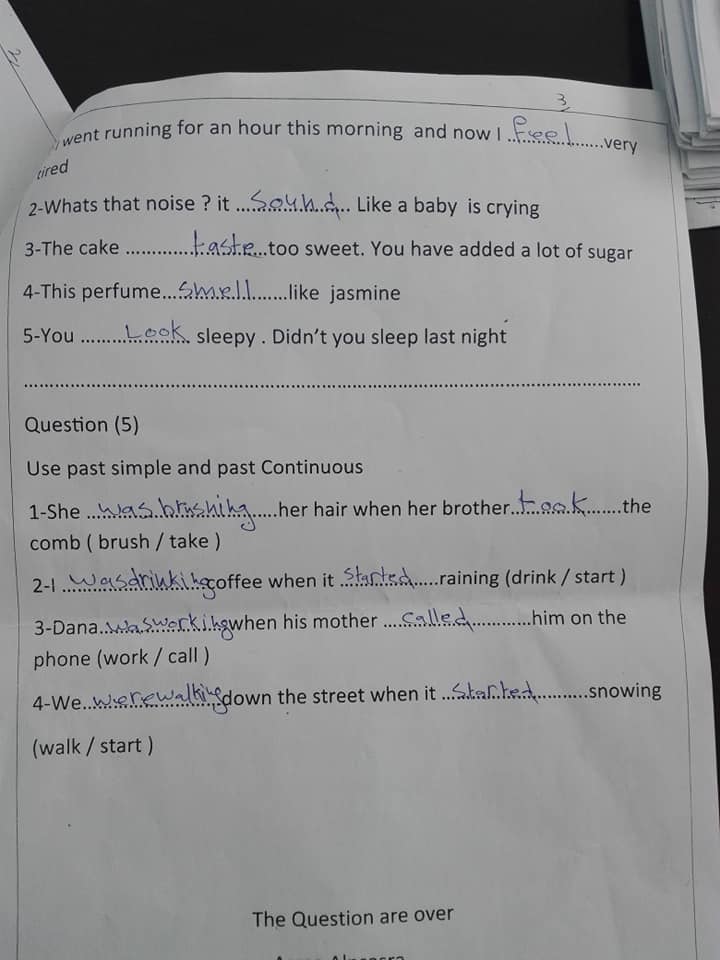 3
went running for an hour this morning and now I ..feel......very
tired
2-Whats that noise ? it ...Sound... Like a baby is crying
3-The cake .............taste...too sweet. You have added a lot of sugar
4-This perfume...Smell.......like jasmine
5-You .........Look. sleepy . Didn't you sleep last night
Question (5)
Use past simple and past Continuous
1-She ..was brushing.....her hair when her brother..took.......the
comb ( brush / take )
2-I ...was drinking coffee when it ..Started.....raining (drink / start )
3-Dana..was working when his mother ....called............him on the
phone (work / call )
4-We..were walking down the street when it ..Started..........snowing
(walk / start )
The Question are over